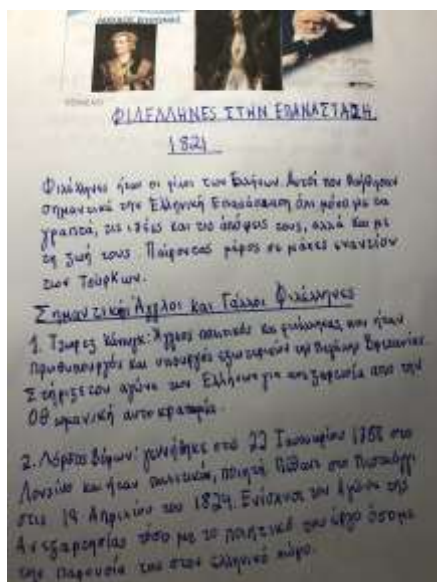 ΦΙΛΕΛΛΗΝΕΣ ΣΤΗΝ ΕΠΑΝΑΣΤΑΣΗ
1821
Φιλέλληνες ήταν οι φίλοι των Ελλήνων. Αυτοί που βοήθησαν
σημαντικά την Ελληνική Επανάσταση όχι μόνο με τα
γραπτά, τις ιδέες και τις απόψεις τους, αλλά και με
τη ζωή τους. Παίρνοντας μέρος σε μάχες εναντίον
των Τούρκων.
Σημαντικοί Άγγλοι και Γάλλοι Φιλέλληνες
1. Τζωρτζ Κάνιγκ: Άγγλος πολιτικός και φιλέλληνας που ήταν
πρωθυπουργός και υπουργός εξωτερικών της Μεγάλης Βρετανίας.
Στήριξε τον αγώνα των Ελλήνων για ανεξαρτησία από την
Οθωμανική αυτοκρατορία.
2. Λόρδος Βύρων: γεννήθηκε στις 22 Ιανουαρίου 1788 στο
Λονδίνο και ήταν πολιτικός, ποιητή. Πέθανε στο Μεσολόγγι
στις 19 Απριλίου του 1824. Ενίσχυσε τον Αγώνα της
Ανεξαρτησίας τόσο με το ποιητικό του έργο όσο με
την παρουσία του στον ελληνικό χώρο.